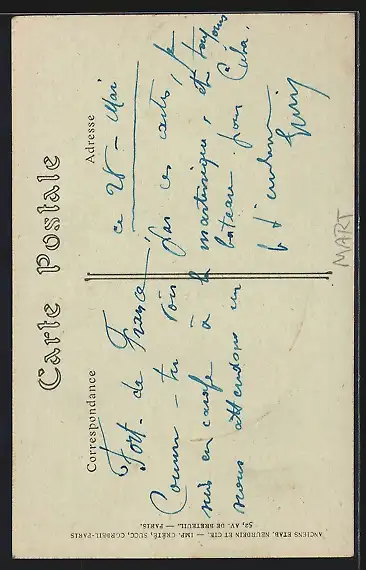 Carte Postale
Correspondance
Adresse
Fort-de-France ce 28 - Mai
Comme - tu vois par ces cartes, je
suis en carafe à la martinique, et toujours
nous attendons un bateau pour Cuba.
ANCIENS ETAB. NEURDEIN ET CIE. — IMP. CRÉTÉ, SUCC., CORBEIL-PARIS
52, AV. DE BRETEUIL. — PARIS.
MART